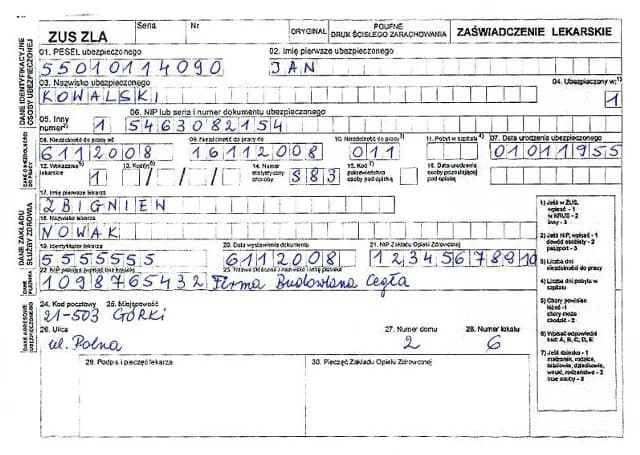 ZUS ZLA Seria Nr ORYGINAŁ POUFNE DRUK ŚCISŁEGO ZARACHOWANIA ZAŚWIADCZENIE LEKARSKIE
01. PESEL ubezpieczonego 02. Imię pierwsze ubezpieczonego
55010114090 JAN
03. Nazwisko ubezpieczonego 04. Ubezpieczony w:1)
KOWALSKI 1
05. Inny numer2) 06. NIP lub seria i numer dokumentu ubezpieczonego
1 5463082154
08. Niezdolność do pracy od 09. Niezdolność do pracy do 10. Niezdolność do pracy3) 11. Pobyt w szpitalu4) 07. Data urodzenia ubezpieczonego
6112008 16112008 011 01011955
12. Wskazania lekarskie 13. Kod(y)6) 14. Numer statystyczny choroby 15. Kod7) pokrewieństwa osoby pod opieką 16. Data urodzenia osoby pozostającej pod opieką
1 / / / S83
17. Imię pierwsze lekarza
ZBIGNIEN
18. Nazwisko lekarza
NOWAK
19. Identyfikator lekarza 20. Data wystawienia dokumentu 21. NIP Zakładu Opieki Zdrowotnej
5555555 6112008 12345678910
22. NIP
1098765432 Firma Budowlana Cegła
24. Kod pocztowy 25. Miejscowość
21-503 GÓRKI
26. Ulica 27. Numer domu 28. Numer lokalu
ul. Polna 2 6
29. Podpis i pieczęć lekarza 30. Pieczęć Zakładu Opieki Zdrowotnej
DANE IDENTYFIKACYJNE OSOBY UBEZPIECZONEJ
DANE O NIEZDOLNOŚCI DO PRACY
DANE ZAKŁADU SŁUŻBY ZDROWIA
DANE ADRESOWE UBEZPIECZONEGO
1) Jeśli w ZUS, wpisać - 1
w KRUS - 2
inny - 3
2) Jeśli NIP, wpisać - 1
dowód osobisty - 2
paszport - 3
3) Liczba dni niezdolności do pracy
4) Liczba dni pobytu w szpitalu
5) Chory powinien leżeć - 1
chory może chodzić - 2
6) Wpisać odpowiedni kod: A, B, C, D, E
7) Jeśli dziecko - 1
małżonek, rodzice,
wnuki, rodzeństwo - 2
inne osoby - 3